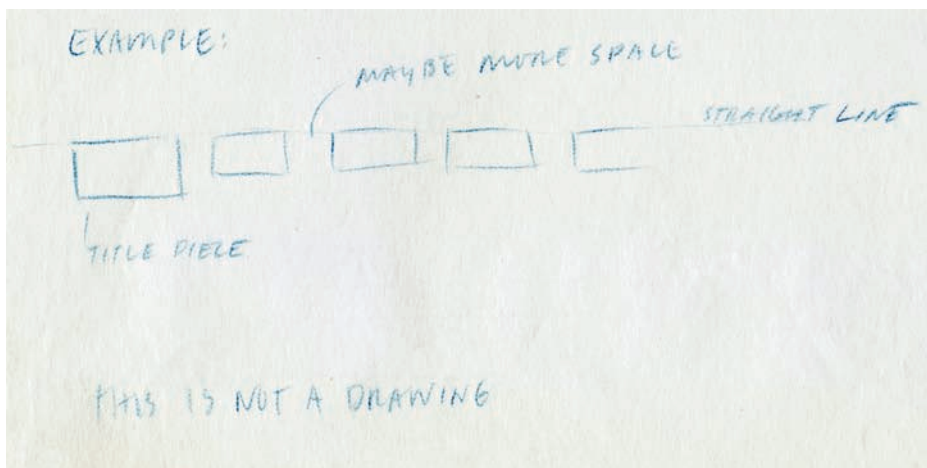 EXAMPLE:
MAYBE MORE SPACE
STRAIGHT LINE
TITLE PIECE
THIS IS NOT A DRAWING